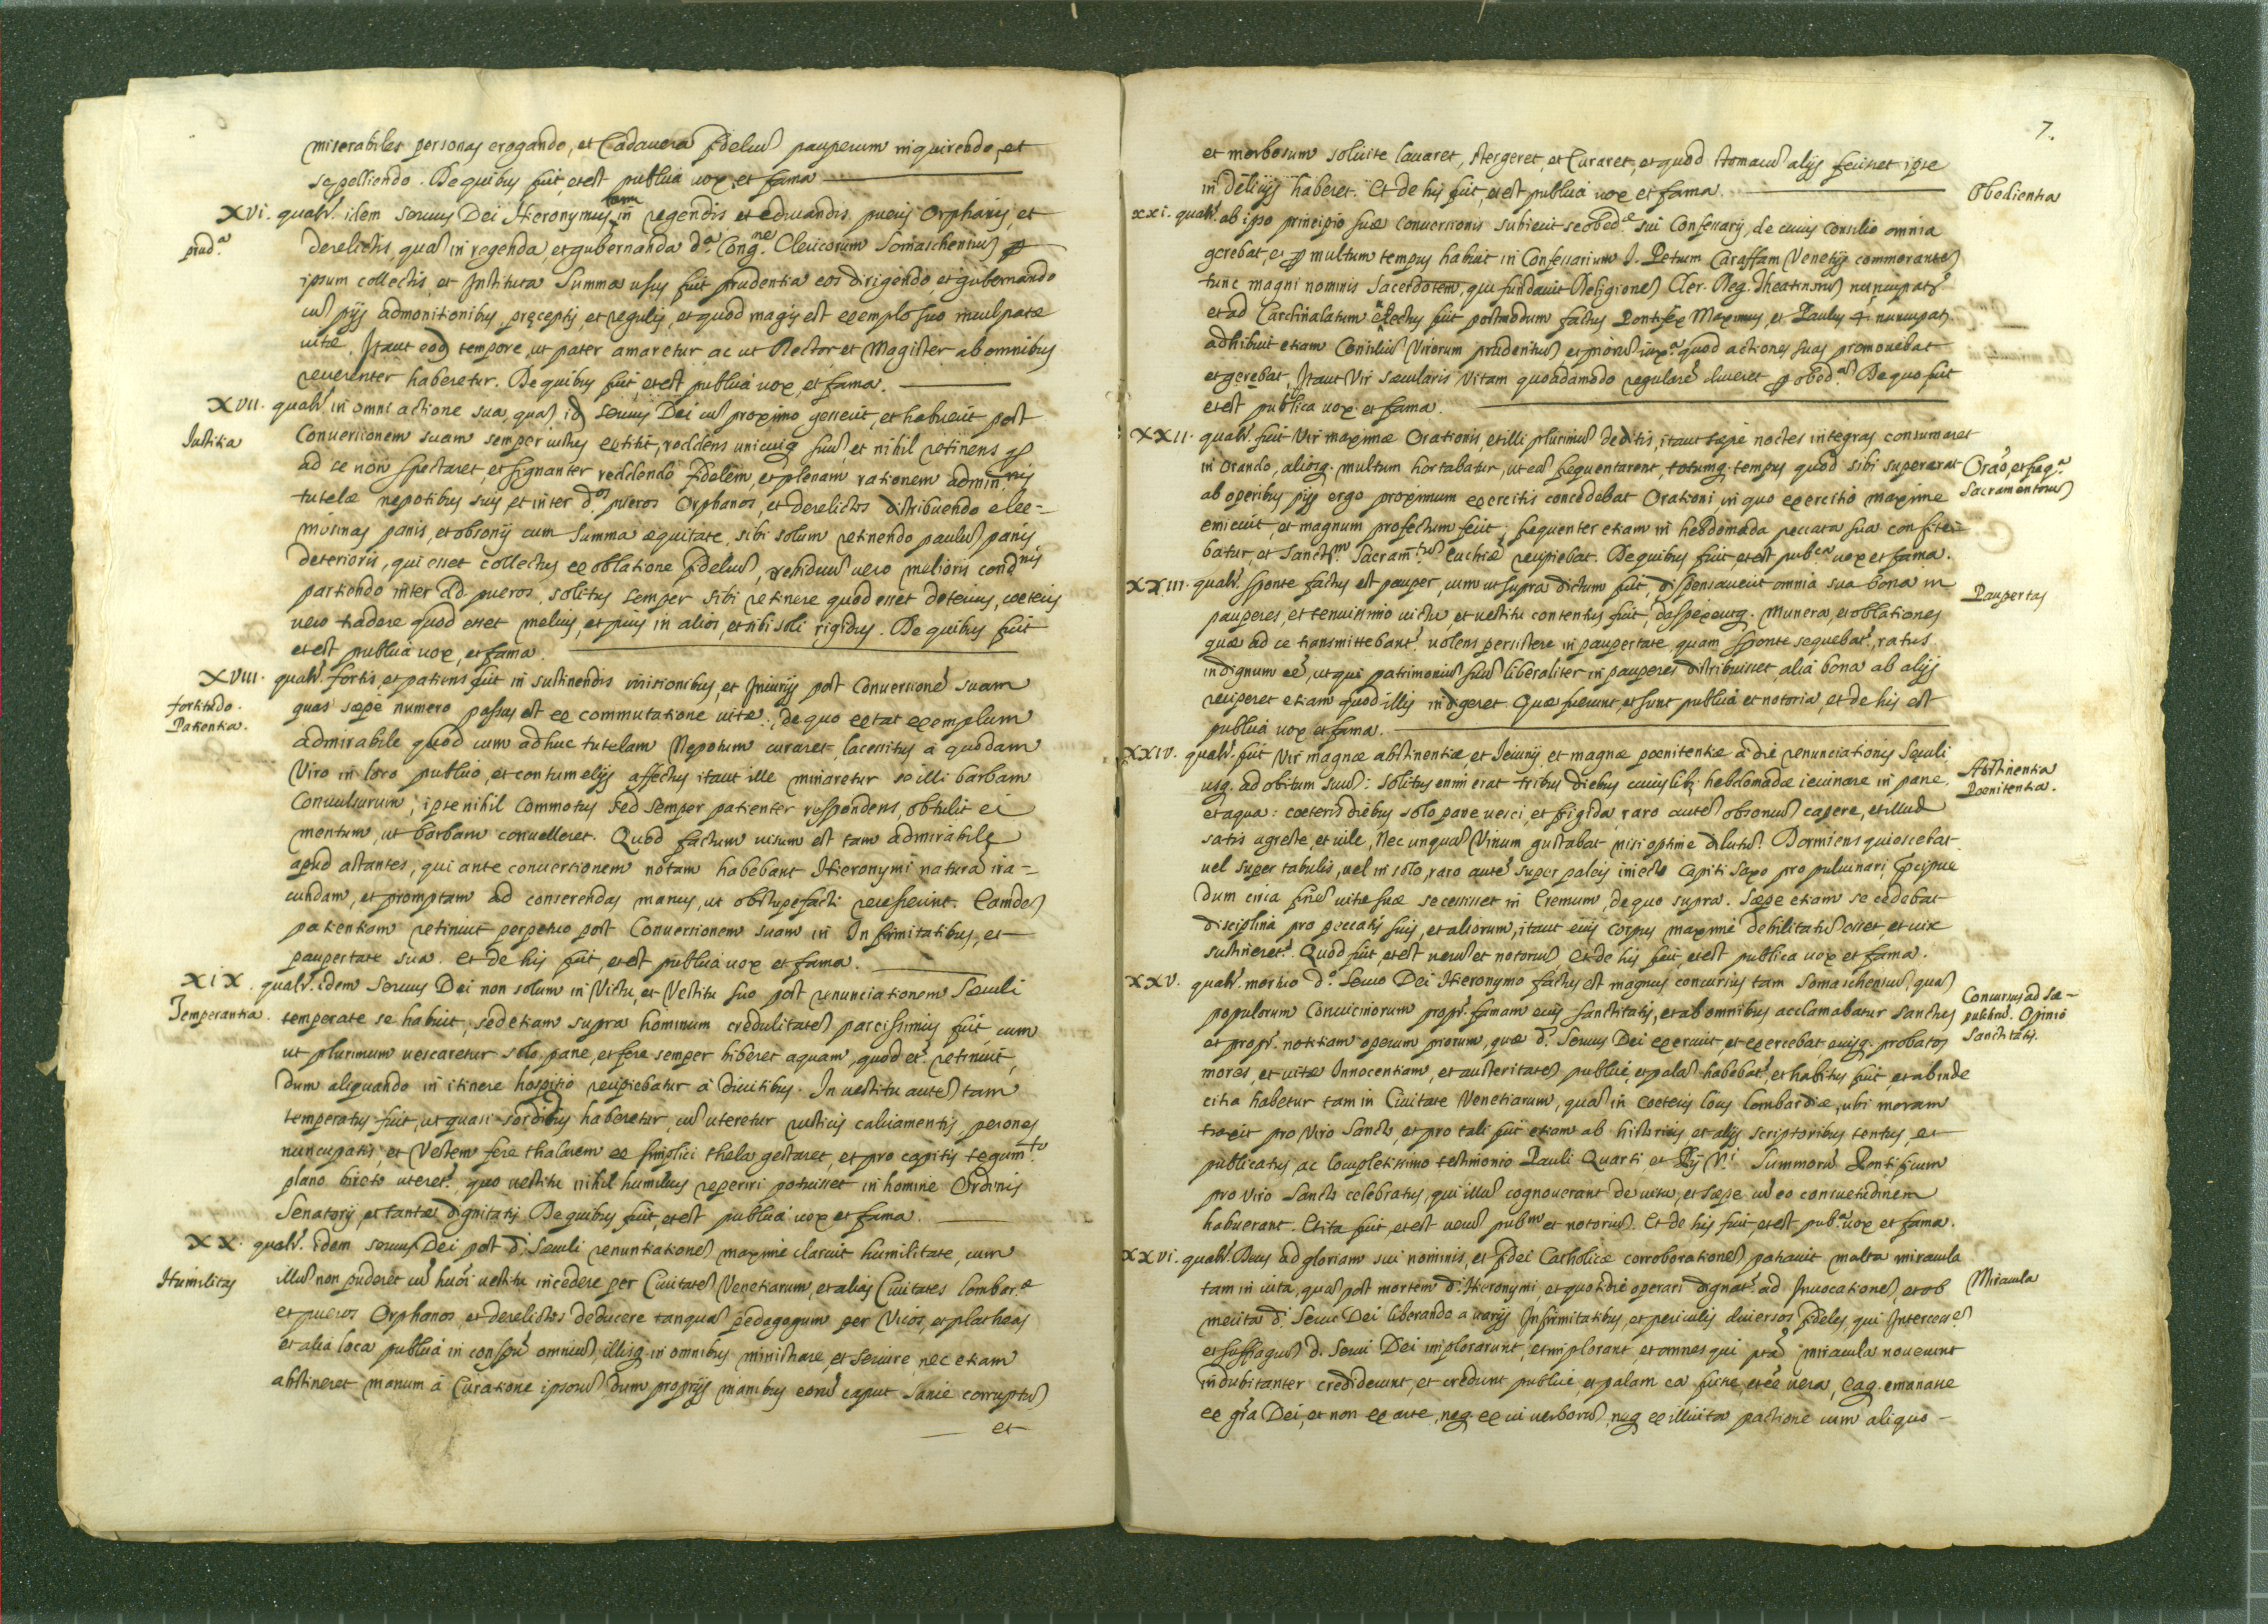 miserabiles personas erogando, et Cadauera fideliũ pauperum inquirendo, et
sepelliendo. De quibus fuit et est publica uox, et fama
XVI. qualr. idem seruus Dei Hieronymus tam in regendis et educandis pueris Orphanis, et
prud.ª
derelictis, quã in regenda, et gubernanda d.ª Cong.ne Clericorum Somaschensiũ p
ipsum collectis, et Instituta summa usus fuit prudentia eos dirigendo, et gubernando
cũ pijs admonitionibus, pręceptis, et regulis, et quod magis est exemplo suo inculpatæ
uitæ. Itaut eod tempore, ut pater amaretur ac ut Rector et Magister ab omnibus
reuerenter haberetur. De quibus fuit, et est publica uox, et fama.
XVII. qualr. in omni actione sua, quã id. seruus Dei cũ proximo gesserit, et habuerit post
Iustitia
Conuersionem suam semper iustus extitit, reddens unicuiq suũ, et nihil retinens qd
ad se non spectaret, et signanter reddendo fidelem, et plenam rationem admin.nis
tutelæ nepotibus suis, et inter d.os pueros Orphanos, et derelictos distribuendo elee=
mosinas panis, et obsonij cum summa æquitate, sibi solum retinendo paulũ panis
deterioris, qui esset collectus ex oblatione fideliũ, residuũ uero melioris condnis
partiendo inter dd. pueros, solitus semper sibi retinere quod esset deterius, coeteris
uero tradere quod esset melius, et pius in alios, et sibi soli rigidus. De quibus fuit
et est publica uox, et fama.
XVIII. qualr. fortis, et patiens fuit in sustinendis irrisionibus, et Iniurijs post Conuersionẽ suam
fortitudo.
Patientia.
quas sæpe numero passus est ex commutatione uitæ, de quo extat exemplum
admirabile quod cum adhuc tutelam Nepotum curaret, lacessitus a quodam
Viro in foro publico, et contumelijs affectus itaut ille minaretur se illi barbam
Conuulsurum, ipse nihil Commotus sed semper patienter respondens, obtulit ei
mentum, ut barbam conuelleret. Quod factum uisum est tam admirabile
apud astantes, qui ante conuersionem notam habebant Hieronymi naturã ira=
cundam, et promptam ad conserendas manus, ut obstupefacti recesserint. Eamdẽ
patientiam retinuit perpetuo post Conuersionem suam in Infirmitatibus, et
paupertate sua. et de his fuit, et est publica uox et fama.
XIX. qualr. idem seruus Dei non solum in Victu, et Vestitu suo post renunciationem Sæculi
Temperantia.
temperate se habuit, sed etiam supra hominum credulitatẽ parcissimus fuit, cum
ut plurimum uescaretur solo pane, et fere semper biberet aquam, quod et retinuit,
dum aliquando in itinere hospitio recipiebatur à diuitibus. In uestitu autẽ tam
temperatus fuit, ut quasi sordidus haberetur, cũ uteretur rusticis calciamentis, perones
nuncupatis, et Vestem fere thalarem ex simplici thela gestaret, et pro capitis tegum.to
plano bireto uteret., quo uestitu nihil humilius reperiri potuisset in homine Ordinis
Senatorij, et tantæ dignitatis. De quibus fuit, et est publica uox et fama.
XX. qualr. idem seruus Dei post d. Sæculi renuntiationẽ maxime claruit humilitate, cum
Humilitas
illũ non puderet cũ huõi uestitu incedere per Ciuitatẽ Venetiarum, et alias Ciuitates Lombar.æ
et pueros Orphanos, et derelictos deducere tanquã pedagogum per Vicos, et plathæas
et alia loca publica in conspu omniũ, illisq. in omnibus ministrare, et seruire, nec etiam
abstineret manum à Curatione ipsorũ dum proprijs manibus eorũ caput sanie corruptũ
et
7.
et morbosum soluisse lauaret, stergeret, et Curaret, et quod stomacũ alijs fecisset ipse
in delicijs haberet. Et de his fuit, et est publica uox et fama.
Obedientia
XXI. qualr. ab ipso principio suæ conuersionis subiecit se obed.æ sui Confessarij, de cuius consilio omnia
gerebat, et p multum tempus habuit in Confessarium J. Petrum Caraffam Venetijs commorantẽ
tunc magni nominis Sacerdotem, qui fundauit Religionẽ Cler. Reg. Theatinorũ nuncupatr
et ad Cardinalatum euectus fuit postmodum factus Pontifex Maximus, et Paulus 4. nuncupat.
adhibuit etiam Consiliũ Virorum prudentũ et piorũ iux.ª quod actiones suas promouebat
et gerebat, Itaut Vir sæcularis Vitam quodãmodo regularẽ duceret p obed.ã De quo fuit
et est publica uox et fama.
XXII. qualr. fuit Vir maximæ Orationis, et illi plurimũ deditus, itaut sæpe noctes integras consumaret
in orando, aliosq. multum hortabatur, ut eã frequentarent, totumq. tempus quod sibi supererat
Orão, et freq.ª
Sacramentorũ
ab operibus pijs erga proximum exercitis concedebat Orationi, in quo exercitio maxime
emicuit, et magnum profectum fecit; frequenter etiam in hebdomada peccata sua confite=
batur, et sanctr.m Sacramtũ Euchræ recipiebat. De quibus fuit, et est pub.ca uox et fama.
XXIII. qualr. sponte factus est pauper, cum ut supra dictum fuit, dispensauerit omnia sua bona in
Paupertas
pauperes, et tenuissimo uictu, et uestitu contentus fuit, despexitq. munera, et oblationes
quæ ad se transmittebant, uolens persistere in paupertate, quam sponte sequebat, ratus
indignum eẽ, ut qui patrimoniũ suũ liberaliter in pauperes distribuisset, alia bona ab alijs
reciperet etiam quod illis indigeret. Quæ fuerunt, et sunt publica et notoria, et de his est
publica uox et fama.
XXIV. qualr. fuit Vir magnæ abstinentiæ, et Ieiunij et magnæ poenitentiæ a die renunciationis Sæculi
Abstinentia
Poenitentia.
usq. ad obitum suũ: solitus enim erat tribus diebus cuiuslib. hebdomadæ ieiunare in pane,
et aqua: coeteris diebus solo pane uesci, et frigida, raro autẽ obsoniũ capere, et illud
satis agreste, et uile, Nec unquã Vinum gustabat nisi optime dilutũ. Dormiens quiescebat
uel super tabulis, uel in solo, raro autẽ super paleis iniecto Capiti saxo pro puluinari, Præcipue
dum circa finẽ uitæ suæ secessisset in Eremum, de quo supra. Sæpe etiam se cedebat
disciplina pro peccatis suis, et aliorum, itaut eius corpus maxime debilitatũ esset, et uix
sustineret. Quod fuit, et est uerũ et notoriũ. Et de his fuit, et est publica uox et fama.
XXV. qualr. mortuo d.º Seruo Dei Hieronymo factus est magnus concursus tam Somaschensiũ, quã
Concursus ad Se=
pulchrũ. Opinio
Sanctitatis.
populorum Conuicinorum propr. famam eius sanctitatis, et ab omnibus acclamabatur sanctus
et propr. notitiam operum piorum, quæ d. Seruus Dei exercuit, et exercebat, eiusq. probatos
mores, et uitæ Innocentiam, et austeritatẽ publice, et palã habebat, et habitus fuit, et ab inde
citra habetur tam in Ciuitate Venetiarum, quã in coeteris locis Lombardiæ, ubi moram
traxit pro Viro Sancto, et pro tali fuit etiam ab historicis, et alijs scriptoribus tentus, et
publicatus, ac locupletissimo testimonio Pauli Quarti et Pij V.i Summorũ Pontificum
pro Viro Sancto celebratus, qui illũ cognouerant de uisu, et sæpe cũ eo consuetudinem
habuerant. Et ita fuit, et est uerũ pub.m et notoriũ. Et de his fuit, et est pub.ª uox et fama.
XXVI. qualr. Deus ad gloriam sui nominis, et fidei Catholicæ corroborationẽ patrauit multa miracula
Miracula
tam in uita, quã post mortem d. Hieronymi, et quotidie operari dignat. ad Inuocationẽ, et ob
merita d. Serui Dei liberando a uarijs Infirmitatibus, et periculis diuersos fideles, qui Intercess.ẽ
et suffragiũ d. Serui Dei implorarunt, et implorant, et omnes qui pta miracula nouerunt
indubitanter crediderunt, et credunt publice, et palam ea fuisse, et eẽ uera, eaq. emanasse
ex gra Dei, et non ex arte, neq. ex ui uerborũ, neq ex illicita pactione cum aliquo